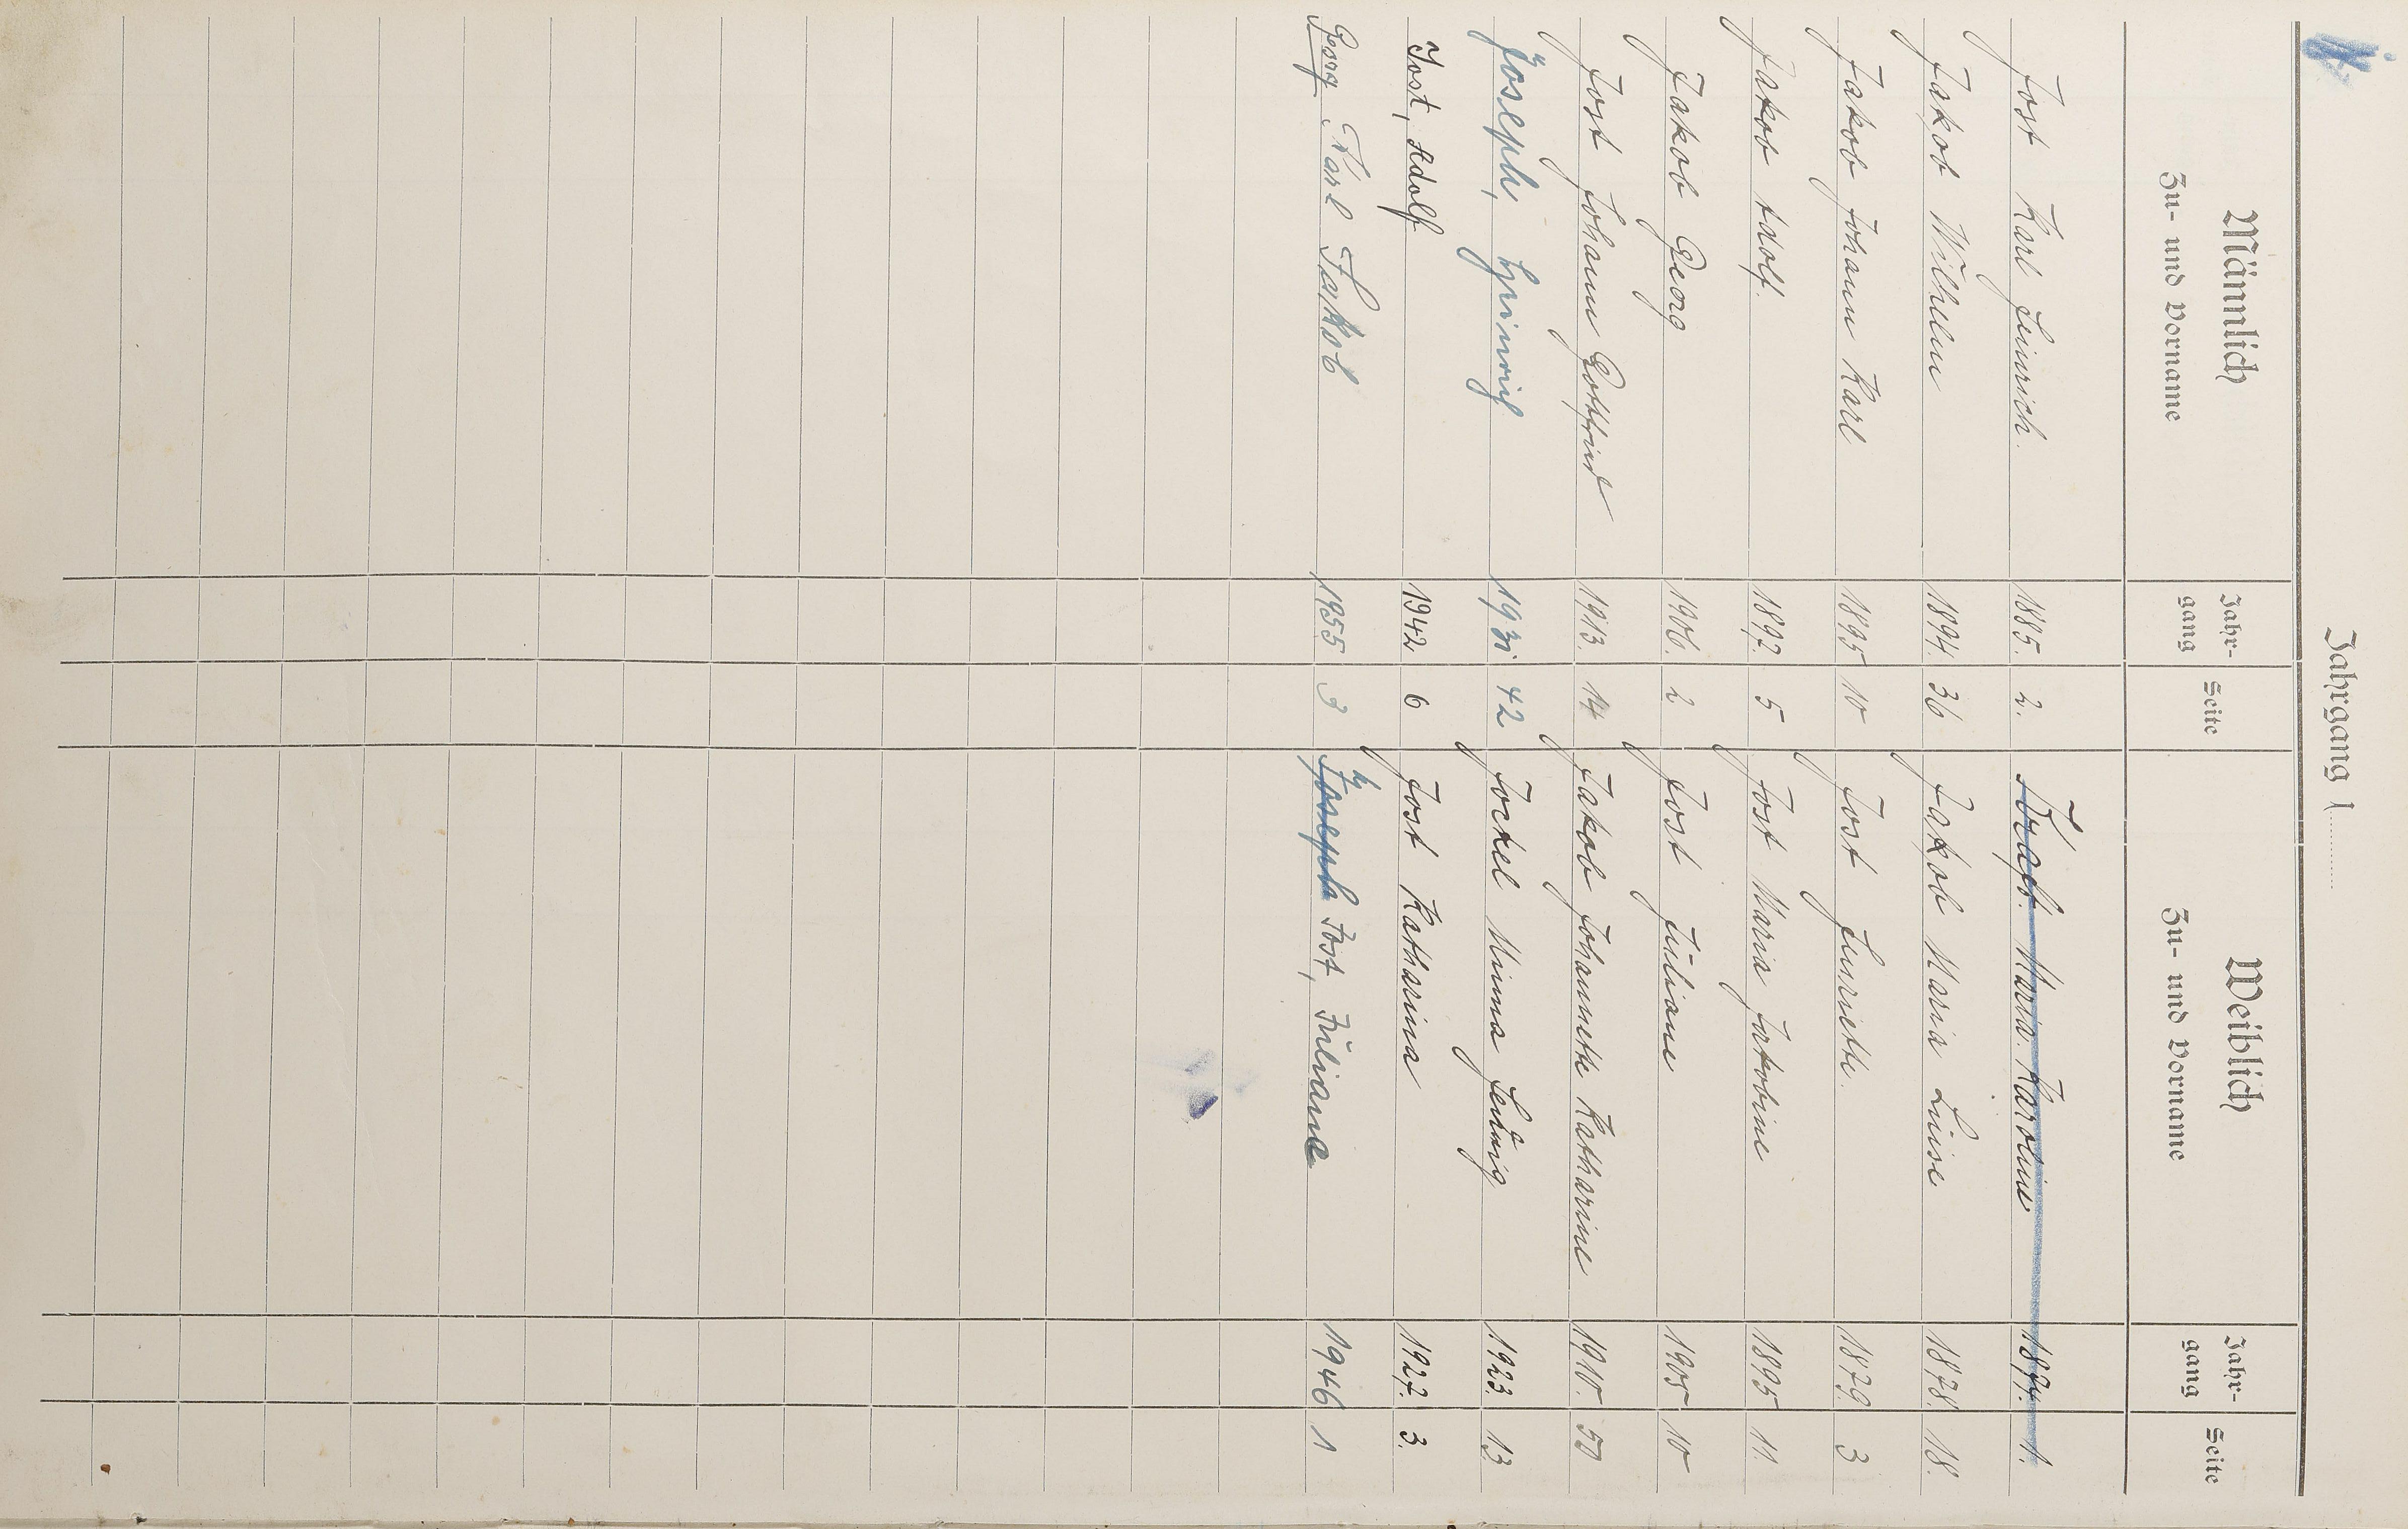 Jahrgang 1
Männlich Jahr- Seite Weiblich Jahr- Seite
Zu- und Vorname gang Zu- und Vorname gang
Jost Karl Heinrich. 1885. 2. Kraft Maria Karoline 1874. 1.
Jakob Wilhelm 1894. 36 Jakob Maria Luise 1878. 18.
Jakob Johann Karl 1895 10 Jost Henriette. 1879. 3
Jakob Adolf. 1897. 5 Jost Maria Jakobine 1895 11.
Jakob Georg 1906. 2 Jost Juliane 1905 10
Jost Johann Gottfried 1913. 14 Jakob Johannette Katharine 1910. 50
Joseph, Heinrich 1931 42 Jockel Minna Hedwig 1923. 13.
Jost, Adolf 1942 6 Jost Katharina 1927. 3.
Georg Karl Jakob 1955 3 Joseph Jost, Juliane 1946 1